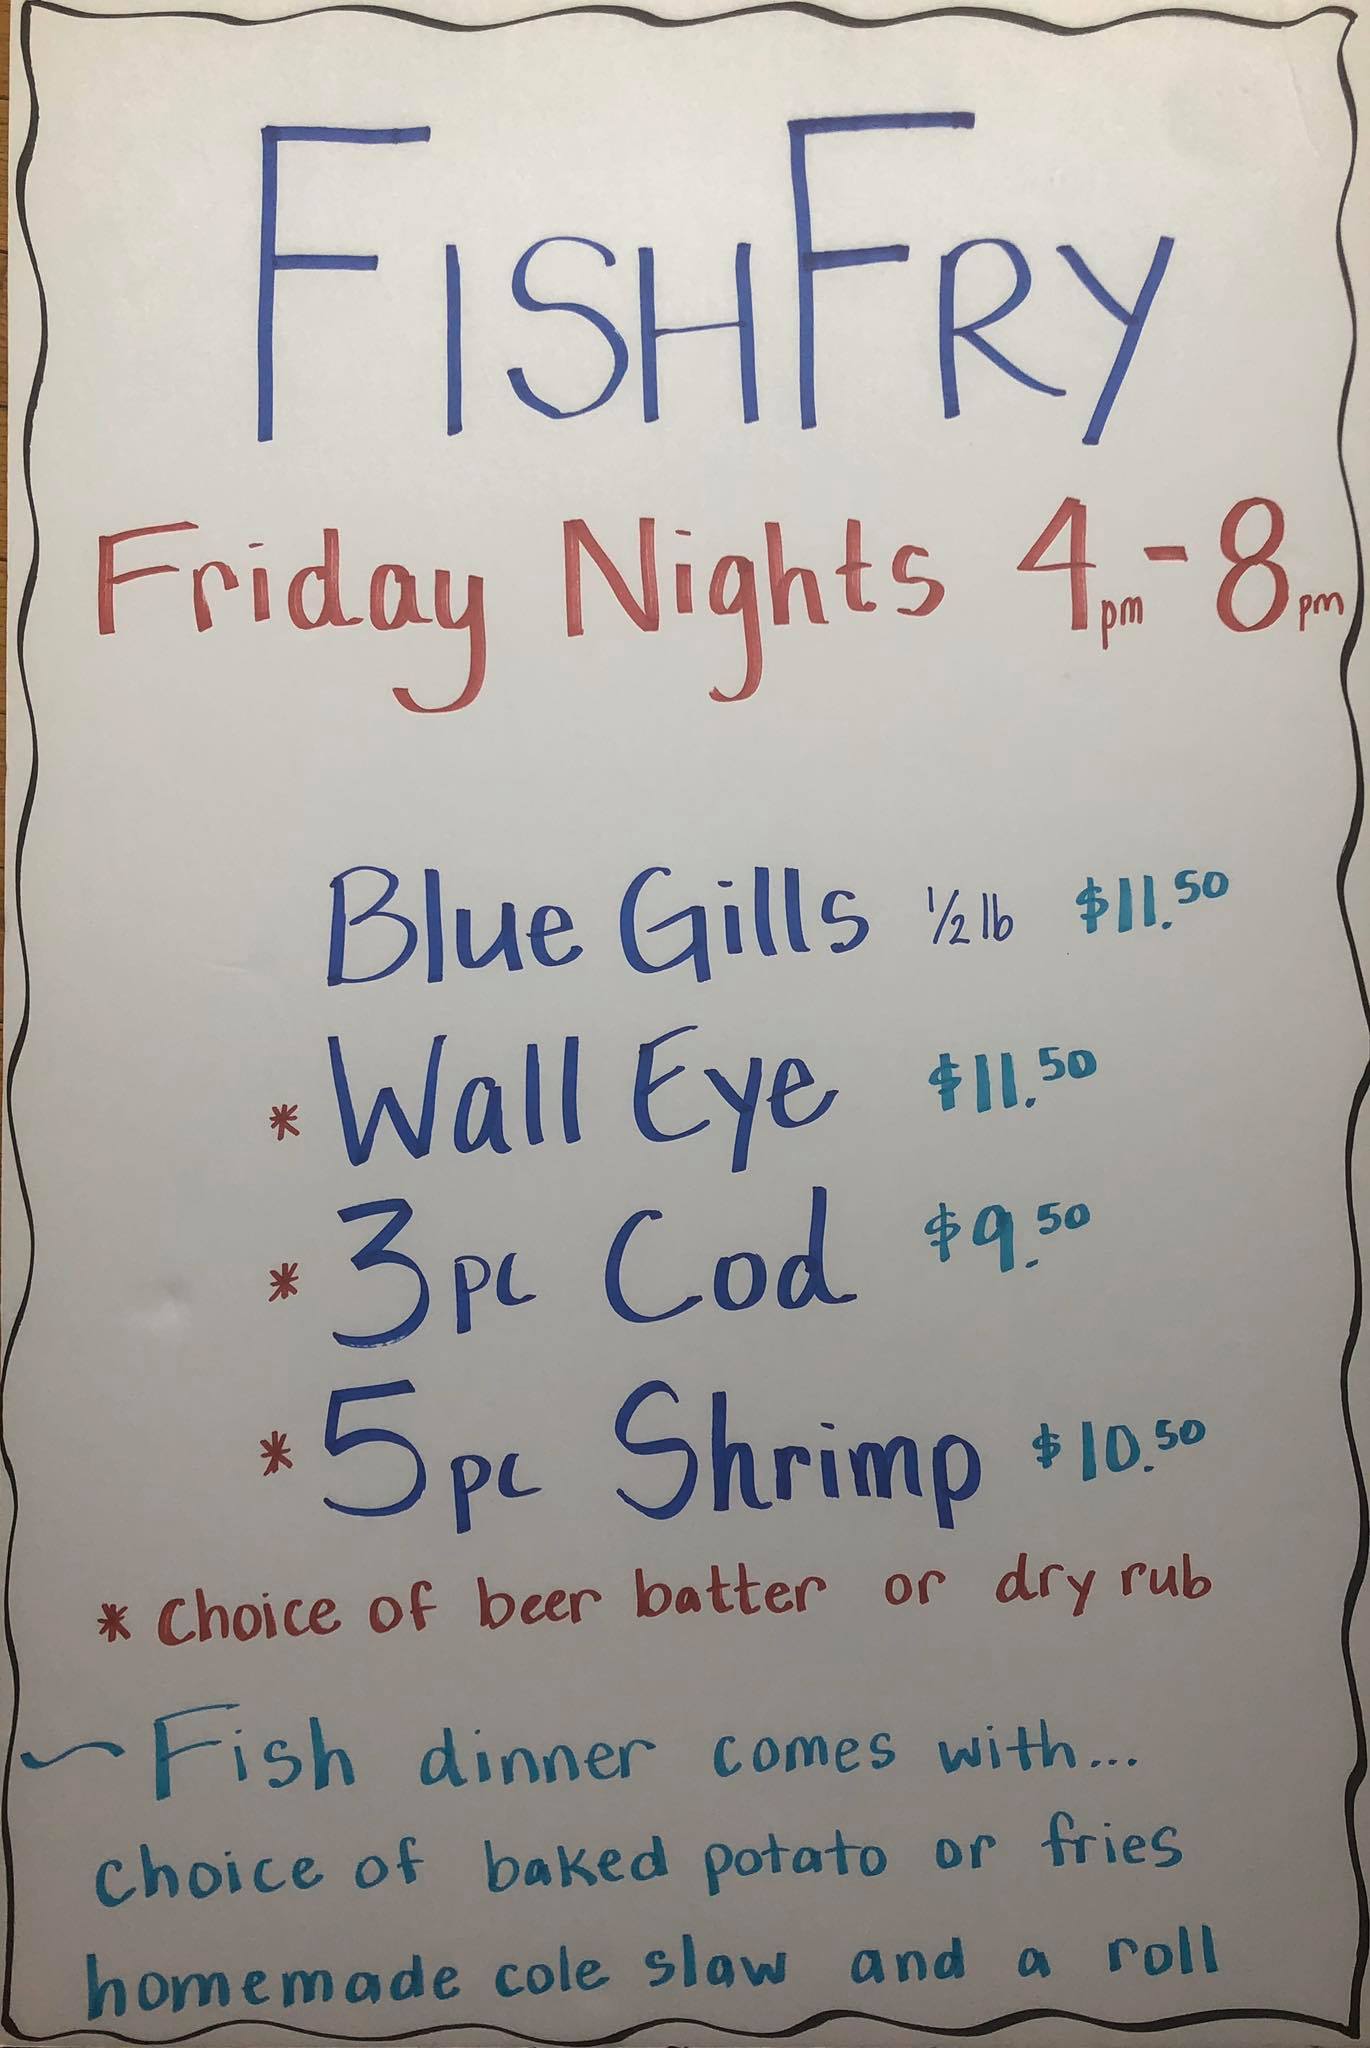 FISH FRY
Friday Nights 4pm-8pm
Blue Gills 1/2 lb $11.50
* Wall Eye $11.50
* 3pc Cod $9.50
* 5pc Shrimp $10.50
* Choice of beer batter or dry rub
~ Fish dinner comes with...
choice of baked potato or fries
homemade cole slaw and a roll